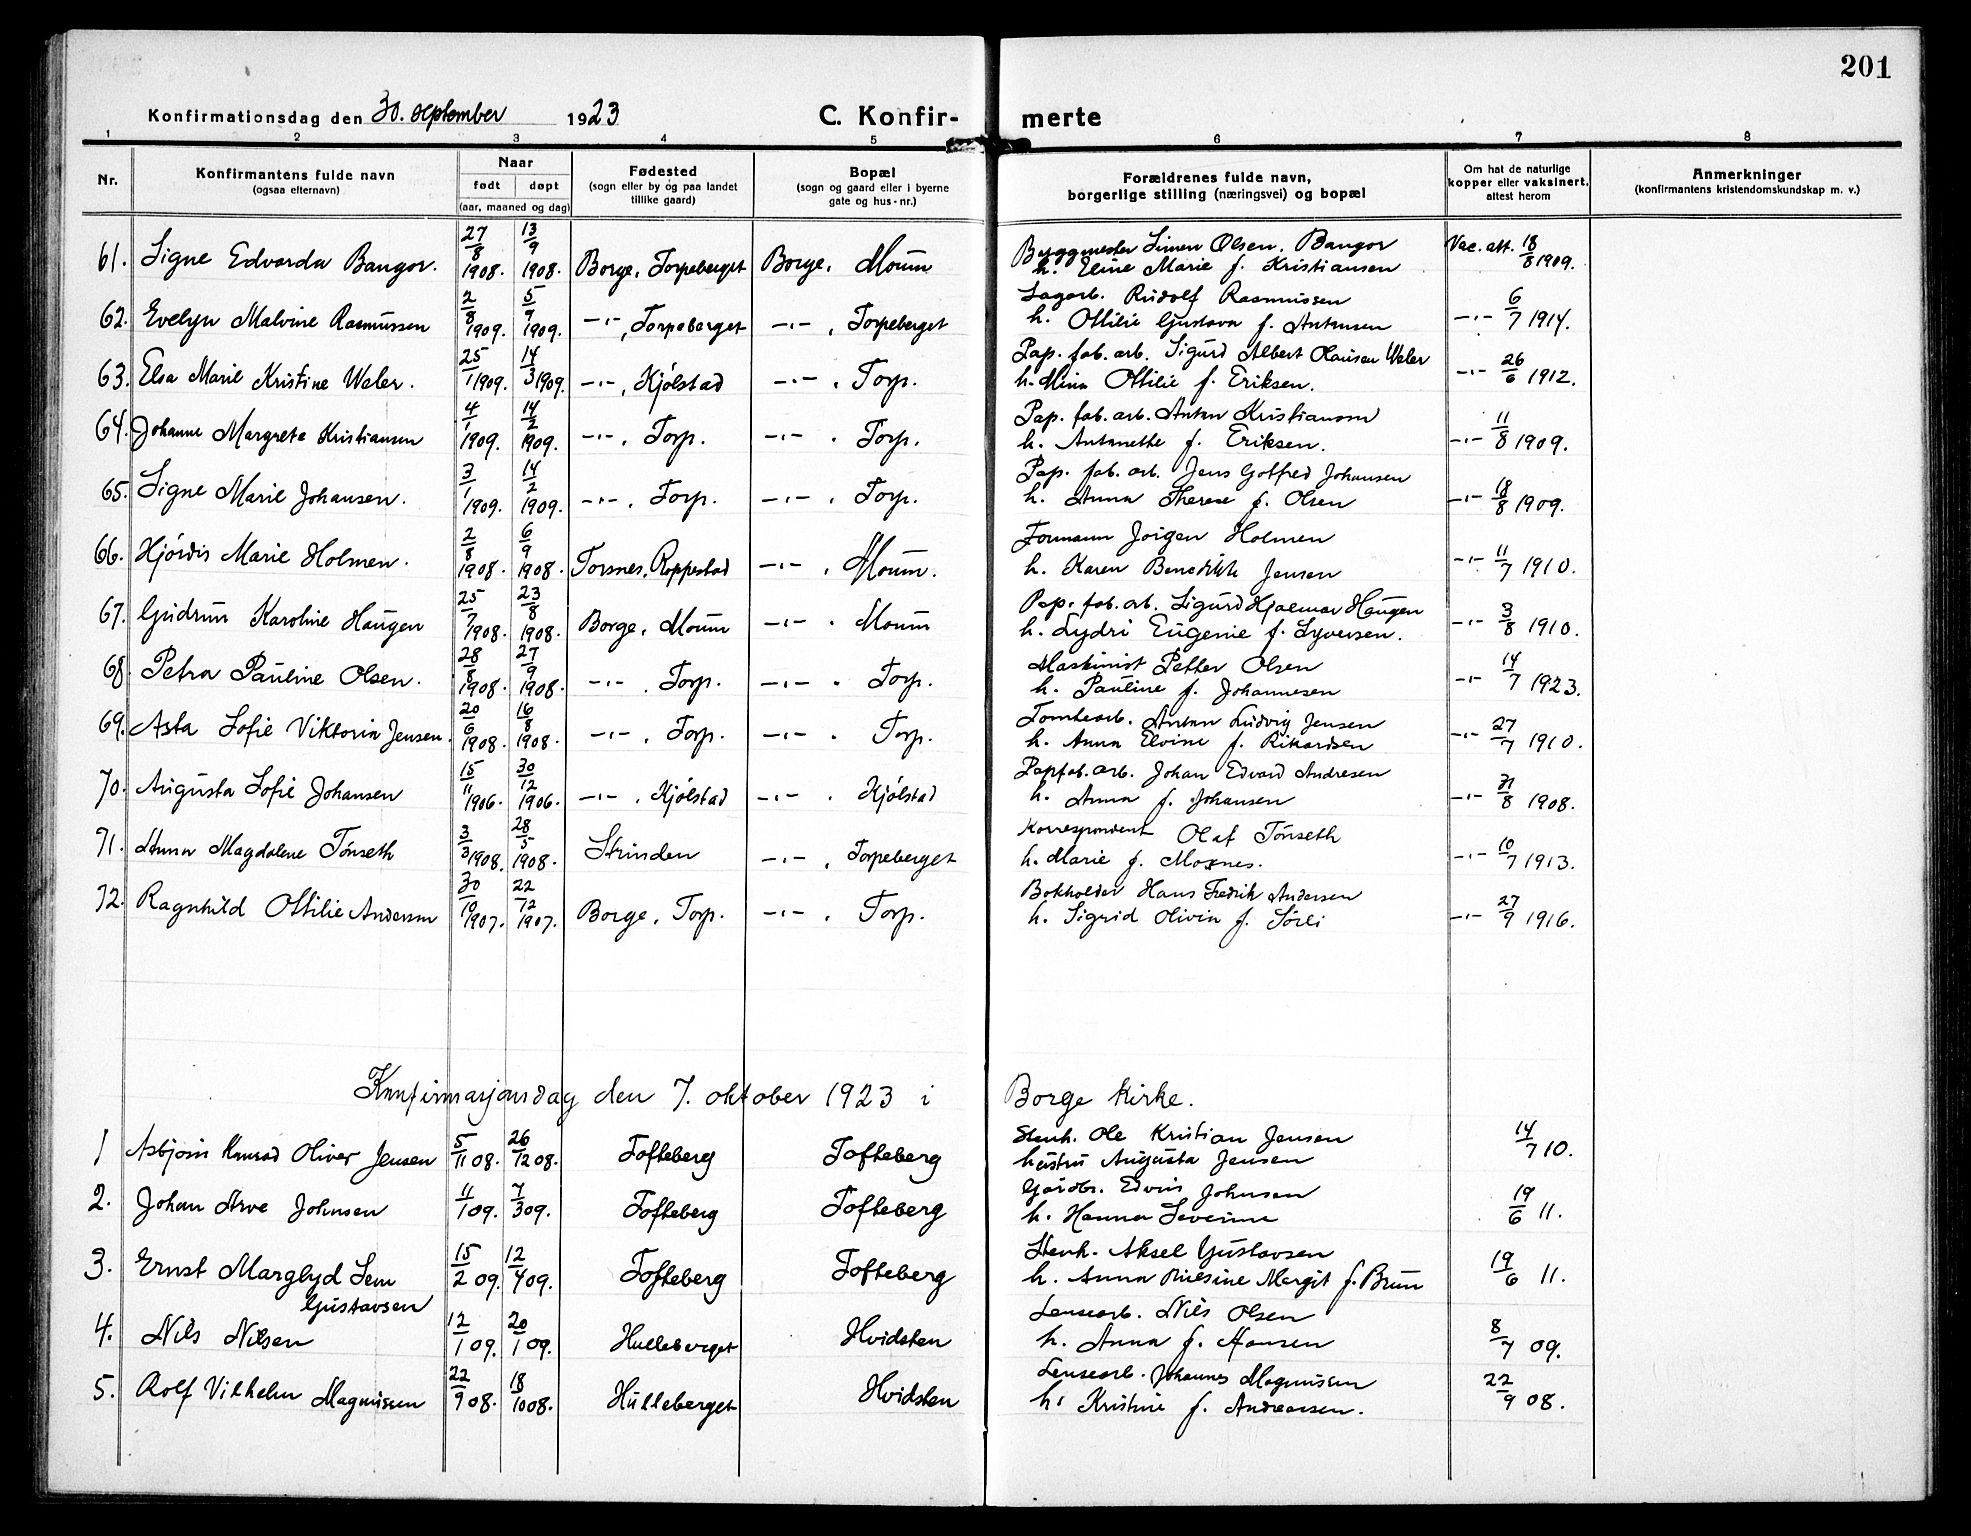 201
Konfirmationsdag den 30. september 1923 C. Konfir- merte
1 2 3 4 5 6 7 8
Nr. Konfirmantens fulde navn (ogsaa efternavn) Naar født døpt (aar, maaned og dag) Fødested (sogn eller by og paa landet tillike gaard) Bopæl (sogn og gaard eller i byerne gate og hus-nr.) Forældrenes fulde navn, borgerlige stilling (næringsvei) og bopæl Om hat de naturlige kopper eller vaksinert, attest herom Anmerkninger (konfirmantens kristendomskundskap m. v.)
61. Signe Edvarda Bangor. 27/8 1908. 13/9 1908. Borge, Torpeberget Borge, Moum Byggmester Simen Olsen Bangor Vac. att. 18/8 1909.
h. Eline Marie f. Kristiansen
62. Evelyn Malvine Rasmussen 2/8 1909. 5/9 1909. -"-, Torpeberget -"-, Torpeberget Sagarb. Rudolf Rasmussen -"- 6/7 1914.
h. Ottilie Gustava f. Antonsen
63. Elsa Marie Kristine Weler. 25/1 1909. 14/3 1909. -"-, Kjölstad -"-, Torp. Pap. fab. arb. Sigurd Albert Olausen Weler -"- 26/6 1912.
h. Mina Ottilie f. Eriksen.
64. Johanne Margrete Kristiansen 4/1 1909. 14/2 1909. -"-, Torp. -"-, Torp. Pap. fab. arb. Anton Kristiansen -"- 11/8 1909.
h. Antonette f. Eriksen.
65. Signe Marie Johansen. 3/1 1909. 14/2 1909. -"-, Torp. -"-, Torp. Pap. fab. arb. Jens Gotfred Johansen -"- 18/8 1909.
h. Anna Therese f. Olsen
66. Hjördis Marie Holmen. 2/8 1908. 6/9 1908. Torsnes, Roppestad -"-, Moum. Formann Jörgen Holmen -"- 11/7 1910.
h. Karen Benedikte Jensen
67. Gudrun Karoline Haugen 25/7 1908. 23/8 1908. Borge, Moum -"-, Moum Pap. fab. arb. Sigurd Hjalmar Haugen -"- 3/8 1910.
h. Lydri Eugenie f. Syversen.
68. Petra Pauline Olsen. 28/8 1908. 27/9 1908. -"-, Torp. -"-, Torp. Maskinist Petter Olsen -"- 14/7 1923.
h. Pauline f. Johannesen
69. Asta Sofie Viktoria Jensen. 20/6 1908. 16/8 1908. -"-, Torp. -"-, Torp. Tomtearb. Anton Ludvig Jensen -"- 27/7 1910.
h. Anna Elvine f. Rikardsen
70. Augusta Sofie Johansen 15/11 1906. 30/12 1906. -"-, Kjölstad -"-, Kjölstad Papfab. arb. Johan Edvard Andresen -"- 31/8 1908.
h. Anna f. Johansen
71. Anna Magdalene Tönseth 3/3 1908. 28/5 1908. Strinden -"-, Torpeberget Korrespondent Olaf Tönseth -"- 10/7 1913.
h. Marie f. Moxnes.
72. Ragnhild Ottilie Andersen 30/10 1907. 22/12 1907. Borge, Torp. -"-, Torp. Bokholder Hans Fredrik Andersen -"- 27/9 1916.
h. Sigrid Olivia f. Sörli
Konfirmasjonsdag den 7. oktober 1923 i Borge kirke.
1 Asbjörn Konrad Oliver Jensen 5/11 08. 26/12 08. Tofteberg Tofteberg Stenh. Ole Kristian Jensen 14/7 10.
hustru Augusta Jensen
2. Johan Arve Johnsen 11/1 09. 7/3 09. Tofteberg Tofteberg Gårdbr. Edvin Johnsen 19/6 11.
h. Hanna Severine
3. Ernst Marglyd Sem Gustavsen 15/2 09. 12/4 09. Tofteberg Tofteberg Stenh. Aksel Gustavsen 19/6 11.
h. Anna Margit f. Brun
4. Nils Nilsen 12/1 09. 20/1 09. Hulleberget Hvidsten Lensearb. Nils Olsen 8/7 09.
h. Anna f. Hansen
5. Rolf Vilhelm Magnussen 22/9 08. 18/10 08. Hulleberget Hvidsten Lensearb. Johannes Magnussen 22/9 08.
h. Kristine f. Andreassen.